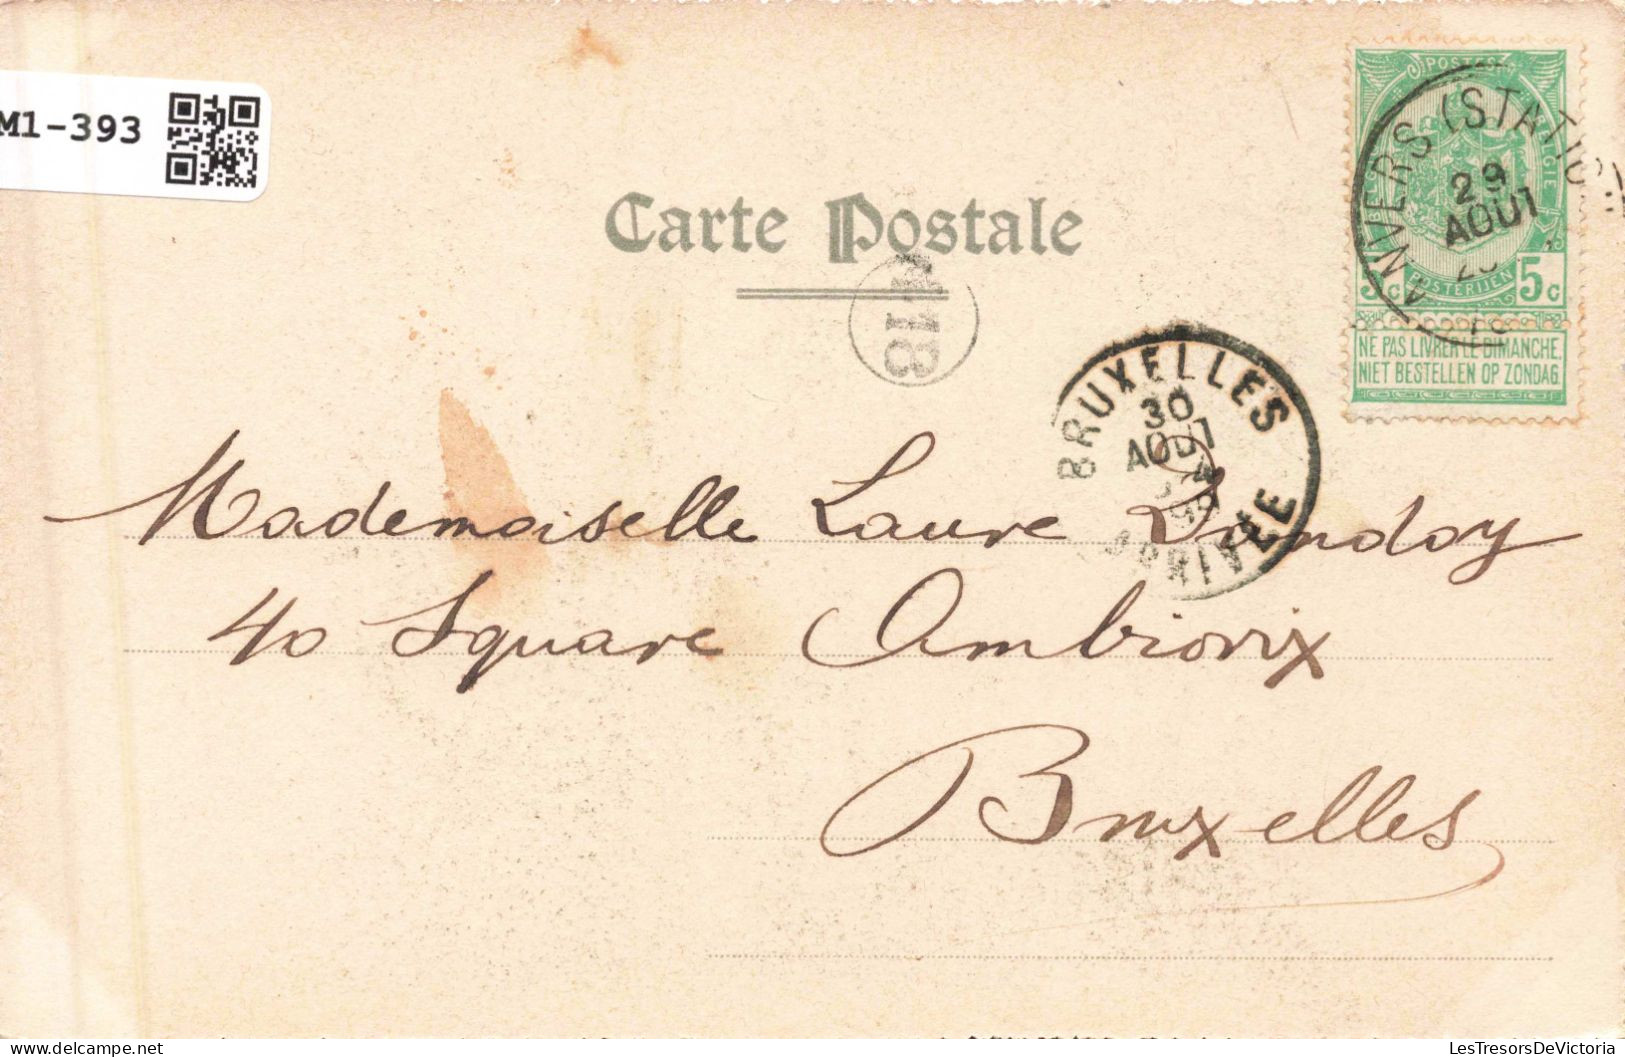 M1-393
Carte Postale
POSTES
BELGIE
POSTERIJEN
5c 5c
NE PAS LIVRER LE DIMANCHE
NIET BESTELLEN OP ZONDAG
ANVERS (STATION)
29
AOUT
BRUXELLES
30
AOUT
ARRIVÉE
Mademoiselle Laure Dandoy
40 Square Ambiorix
Bruxelles
LesTresorsDeVictoria